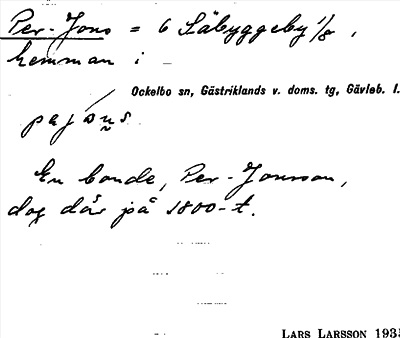 Per-Jons = 6 Säbyggeby 1/8,
hemman i
Ockelbo sn, Gästriklands v. doms. tg, Gävleb. l.
pejo̱ns
En bonde, Per-Jonsson,
dog där på 1800-t.
LARS LARSSON 1935